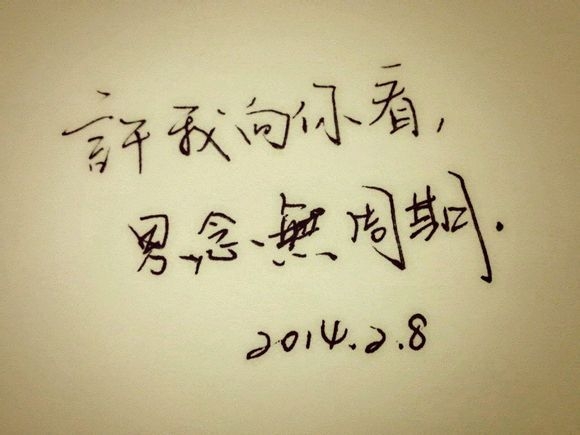 許我向你看,
思念無周期.
2014.2.8